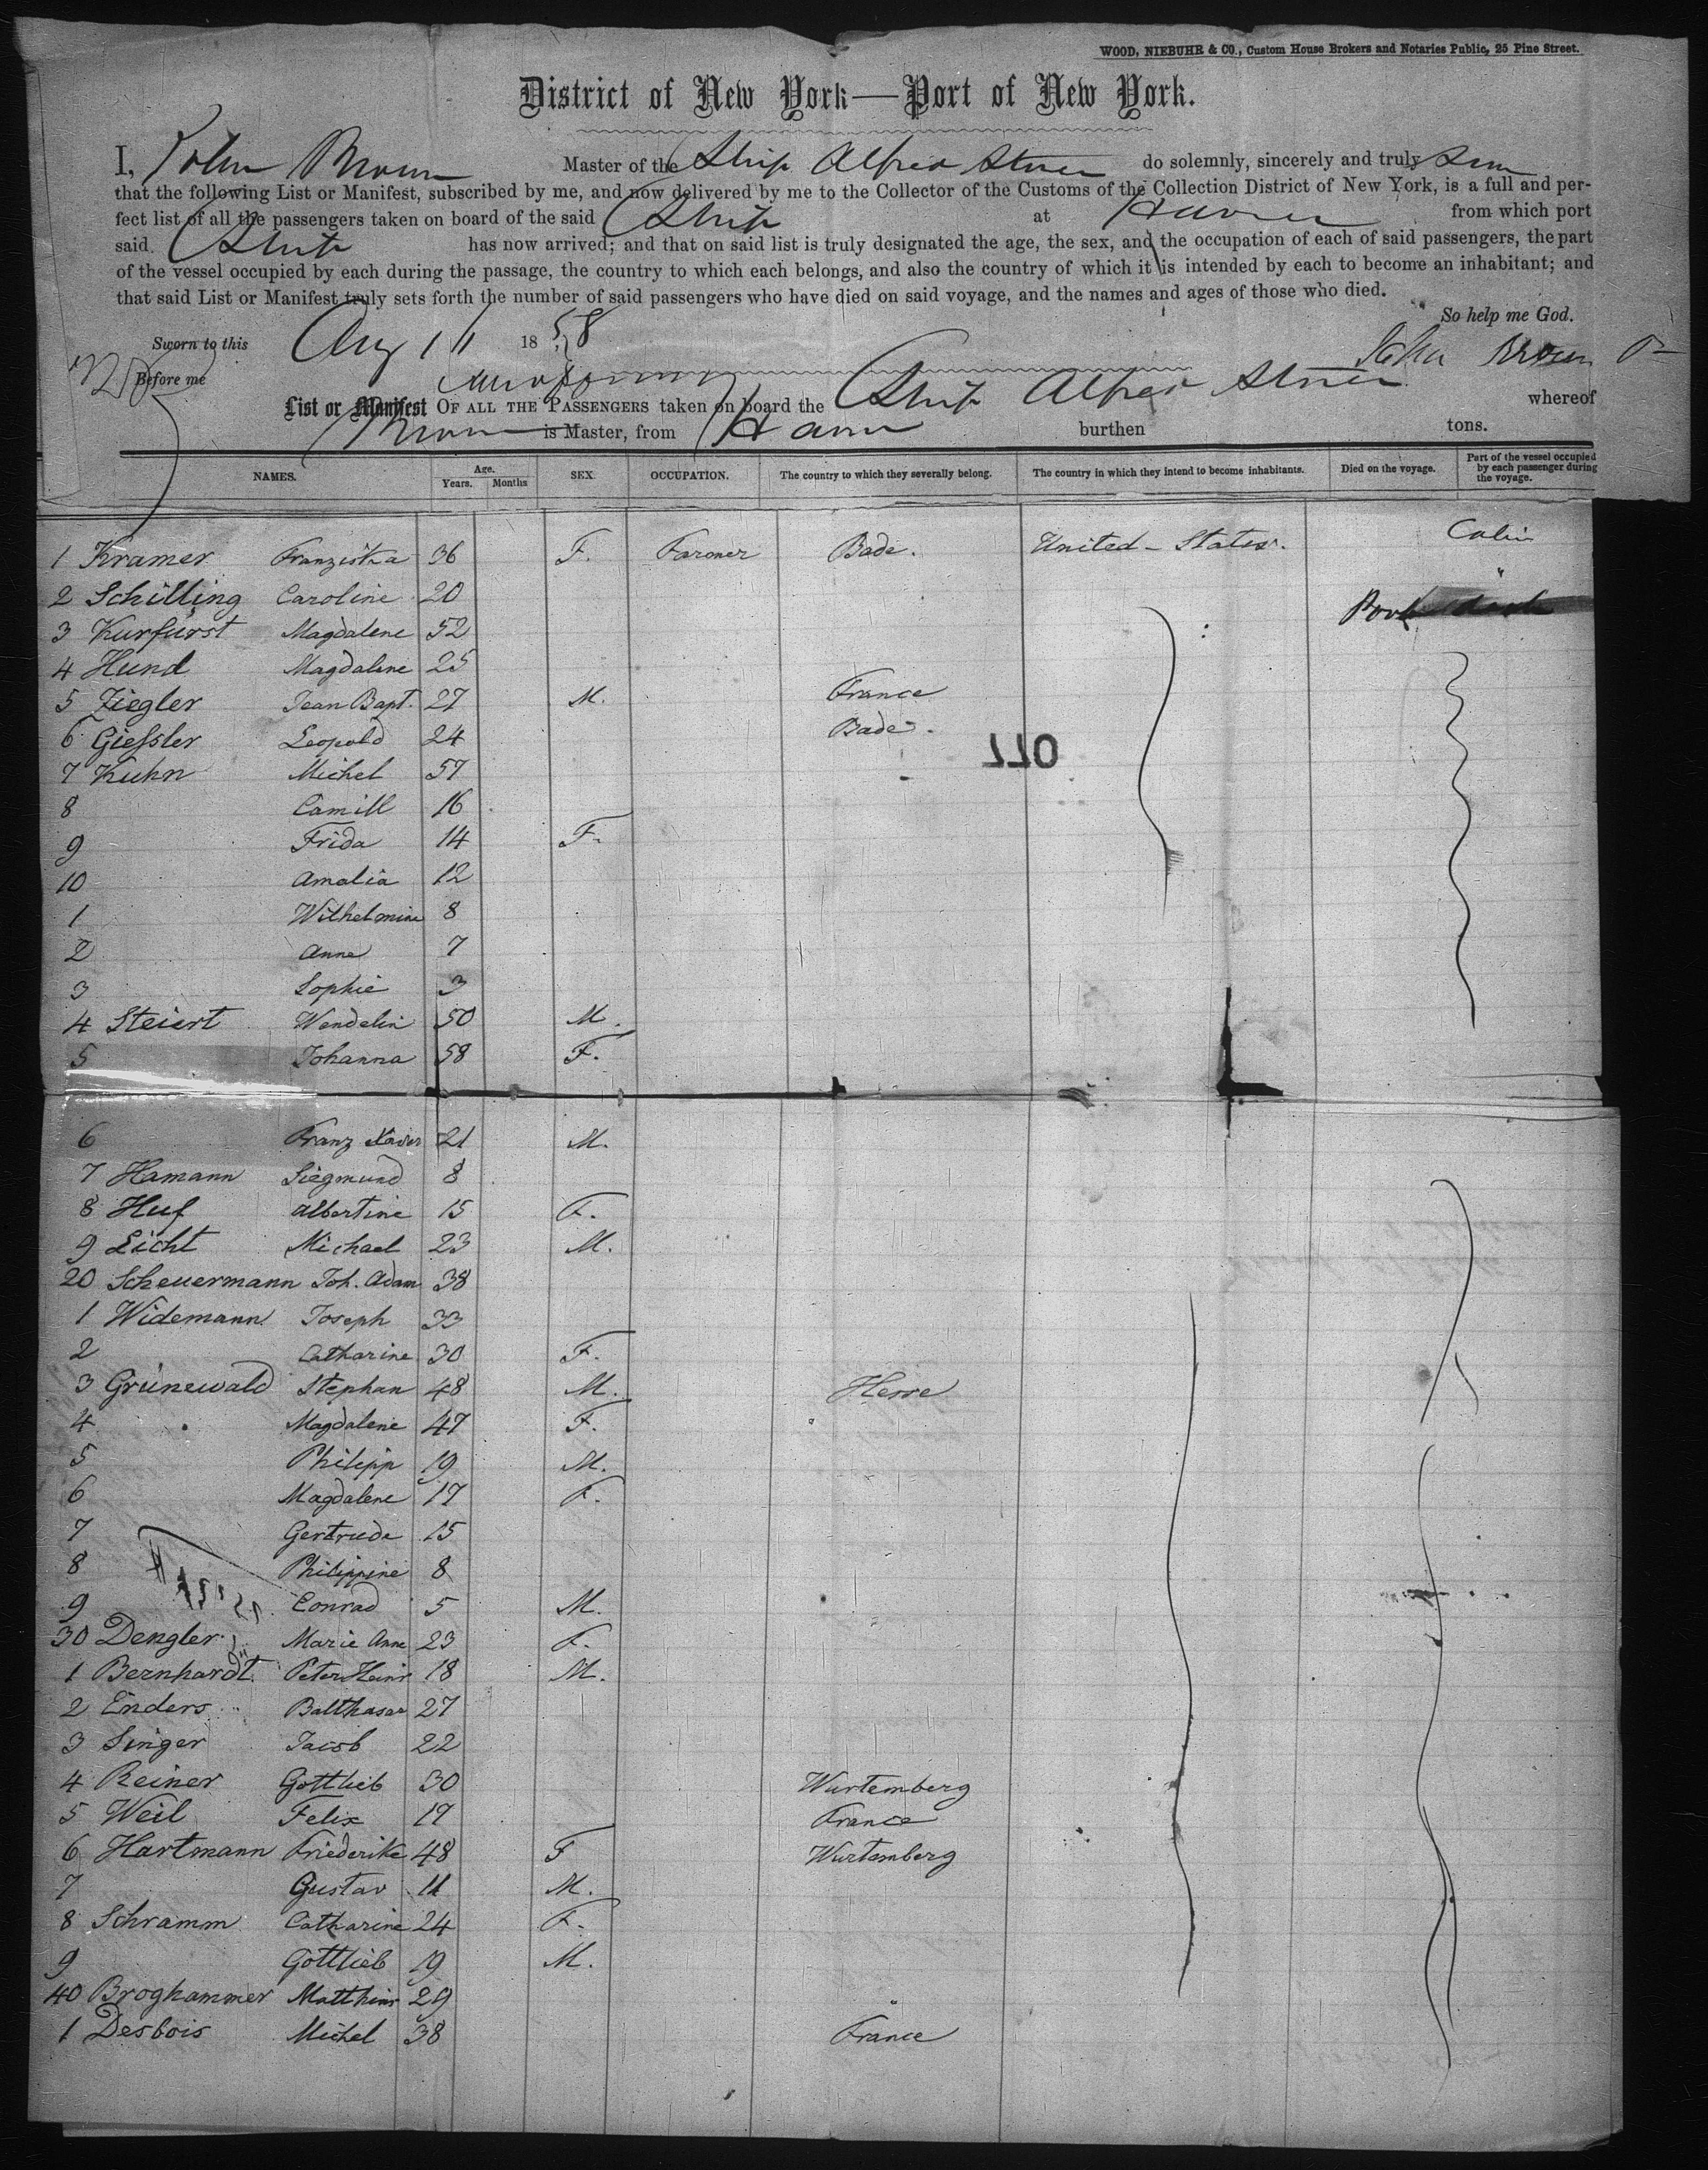 WOOD, NIEBUHR & CO., Custom House Brokers and Notaries Public, 25 Pine Street.
District of New York—Port of New York.
I, John Brown Master of the Ship Alfred Storer do solemnly, sincerely and truly
that the following List or Manifest, subscribed by me, and now delivered by me to the Collector of the Customs of the Collection District of New York, is a full and per-
fect list of all the passengers taken on board of the said Ship at Havre from which port
said Ship has now arrived; and that on said list is truly designated the age, the sex, and the occupation of each of said passengers, the part
of the vessel occupied by each during the passage, the country to which each belongs, and also the country of which it is intended by each to become an inhabitant; and
that said List or Manifest truly sets forth the number of said passengers who have died on said voyage, and the names and ages of those who died.
So help me God.
Sworn to this Aug 11 1858
John Brown
Before me
List or Manifest OF ALL THE PASSENGERS taken on board the Ship Alfred Storer whereof
Brown is Master, from Havre burthen tons.
NAMES. Age. Years. Months SEX. OCCUPATION. The country to which they severally belong. The country in which they intend to become inhabitants. Died on the voyage. Part of the vessel occupied by each passenger during the voyage.
1 Kramer Franziska 36 F. Farmer Bade. United-States.
2 Schilling Caroline 20
3 Kurfürst Magdalene 52
4 Hund Magdalene 25
5 Ziegler Jean Bapt. 27 M. France
6 Giessler Leopold 24 Bade.
770
7 Kuhn Michel 57
8 Camill 16
9 Frida 14 F.
10 Amalia 12
1 Wilhelmine 8
2 Anne 7
3 Sophie 3
4 Steiert Wendelin 50 M.
5 Johanna 58 F.
6 Franz Xaver 21 M.
7 Hamann Siegmund 8
8 Huf Albertine 15 F.
9 Licht Michael 23 M.
20 Scheuermann Joh. Adam 38
1 Widemann Joseph 33
2 Catharine 30 F.
3 Grünewald Stephan 48 M. Hesse
4 Magdalene 47 F.
5 Philipp 19 M.
6 Magdalene 17 F.
7 Gertrude 15
8 Philippine 8
9 Conrad 5 M.
30 Dengler Marie Anne 23 F.
1 Bernhardt Peter Heinr 18 M.
2 Enders Balthasar 27
3 Singer Jacob 22
4 Reiner Gottlieb 30 Wurtemberg
5 Weil Felix 17 France
6 Hartmann Friederike 48 F Wurtemberg
7 Gustav 11 M.
8 Schramm Catharine 24 F.
9 Gottlieb 19 M.
40 Broghammer Matthias 29
1 Desbois Michel 38 France